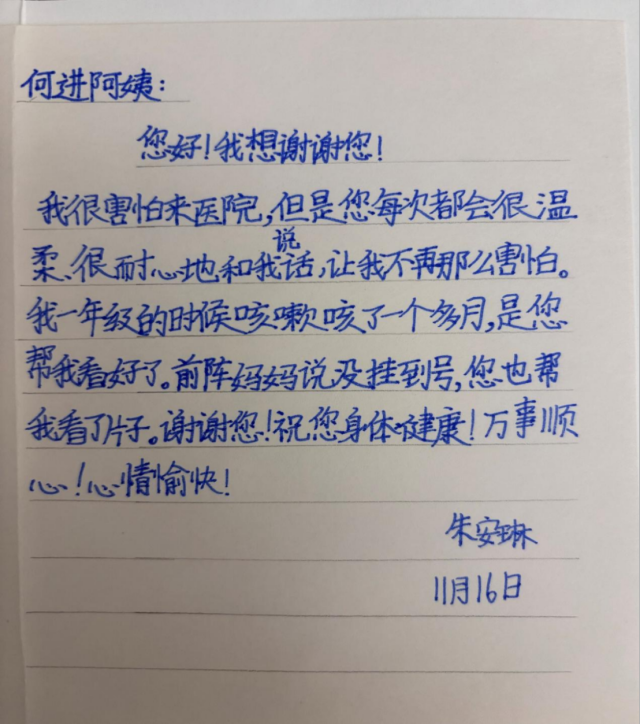 何进阿姨：
您好！我想谢谢您！
我很害怕来医院，但是您每次都会很温
柔、很耐心地和我说话，让我不再那么害怕。
我一年级的时候咳嗽咳了一个多月，是您
帮我看好了。前阵妈妈说没挂到号，您也帮
我看了片子。谢谢您！祝您身体健康！万事顺
心！心情愉快！
朱安琳
11月16日